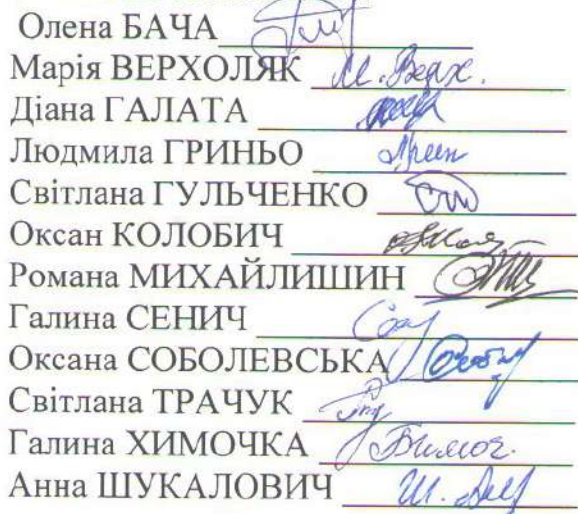 Олена БАЧА
Марія ВЕРХОЛЯК М. Верх.
Діана ГАЛАТА
Людмила ГРИНЬО
Світлана ГУЛЬЧЕНКО
Оксан КОЛОБИЧ
Романа МИХАЙЛИШИН
Галина СЕНИЧ
Оксана СОБОЛЕВСЬКА
Світлана ТРАЧУК
Галина ХИМОЧКА
Анна ШУКАЛОВИЧ